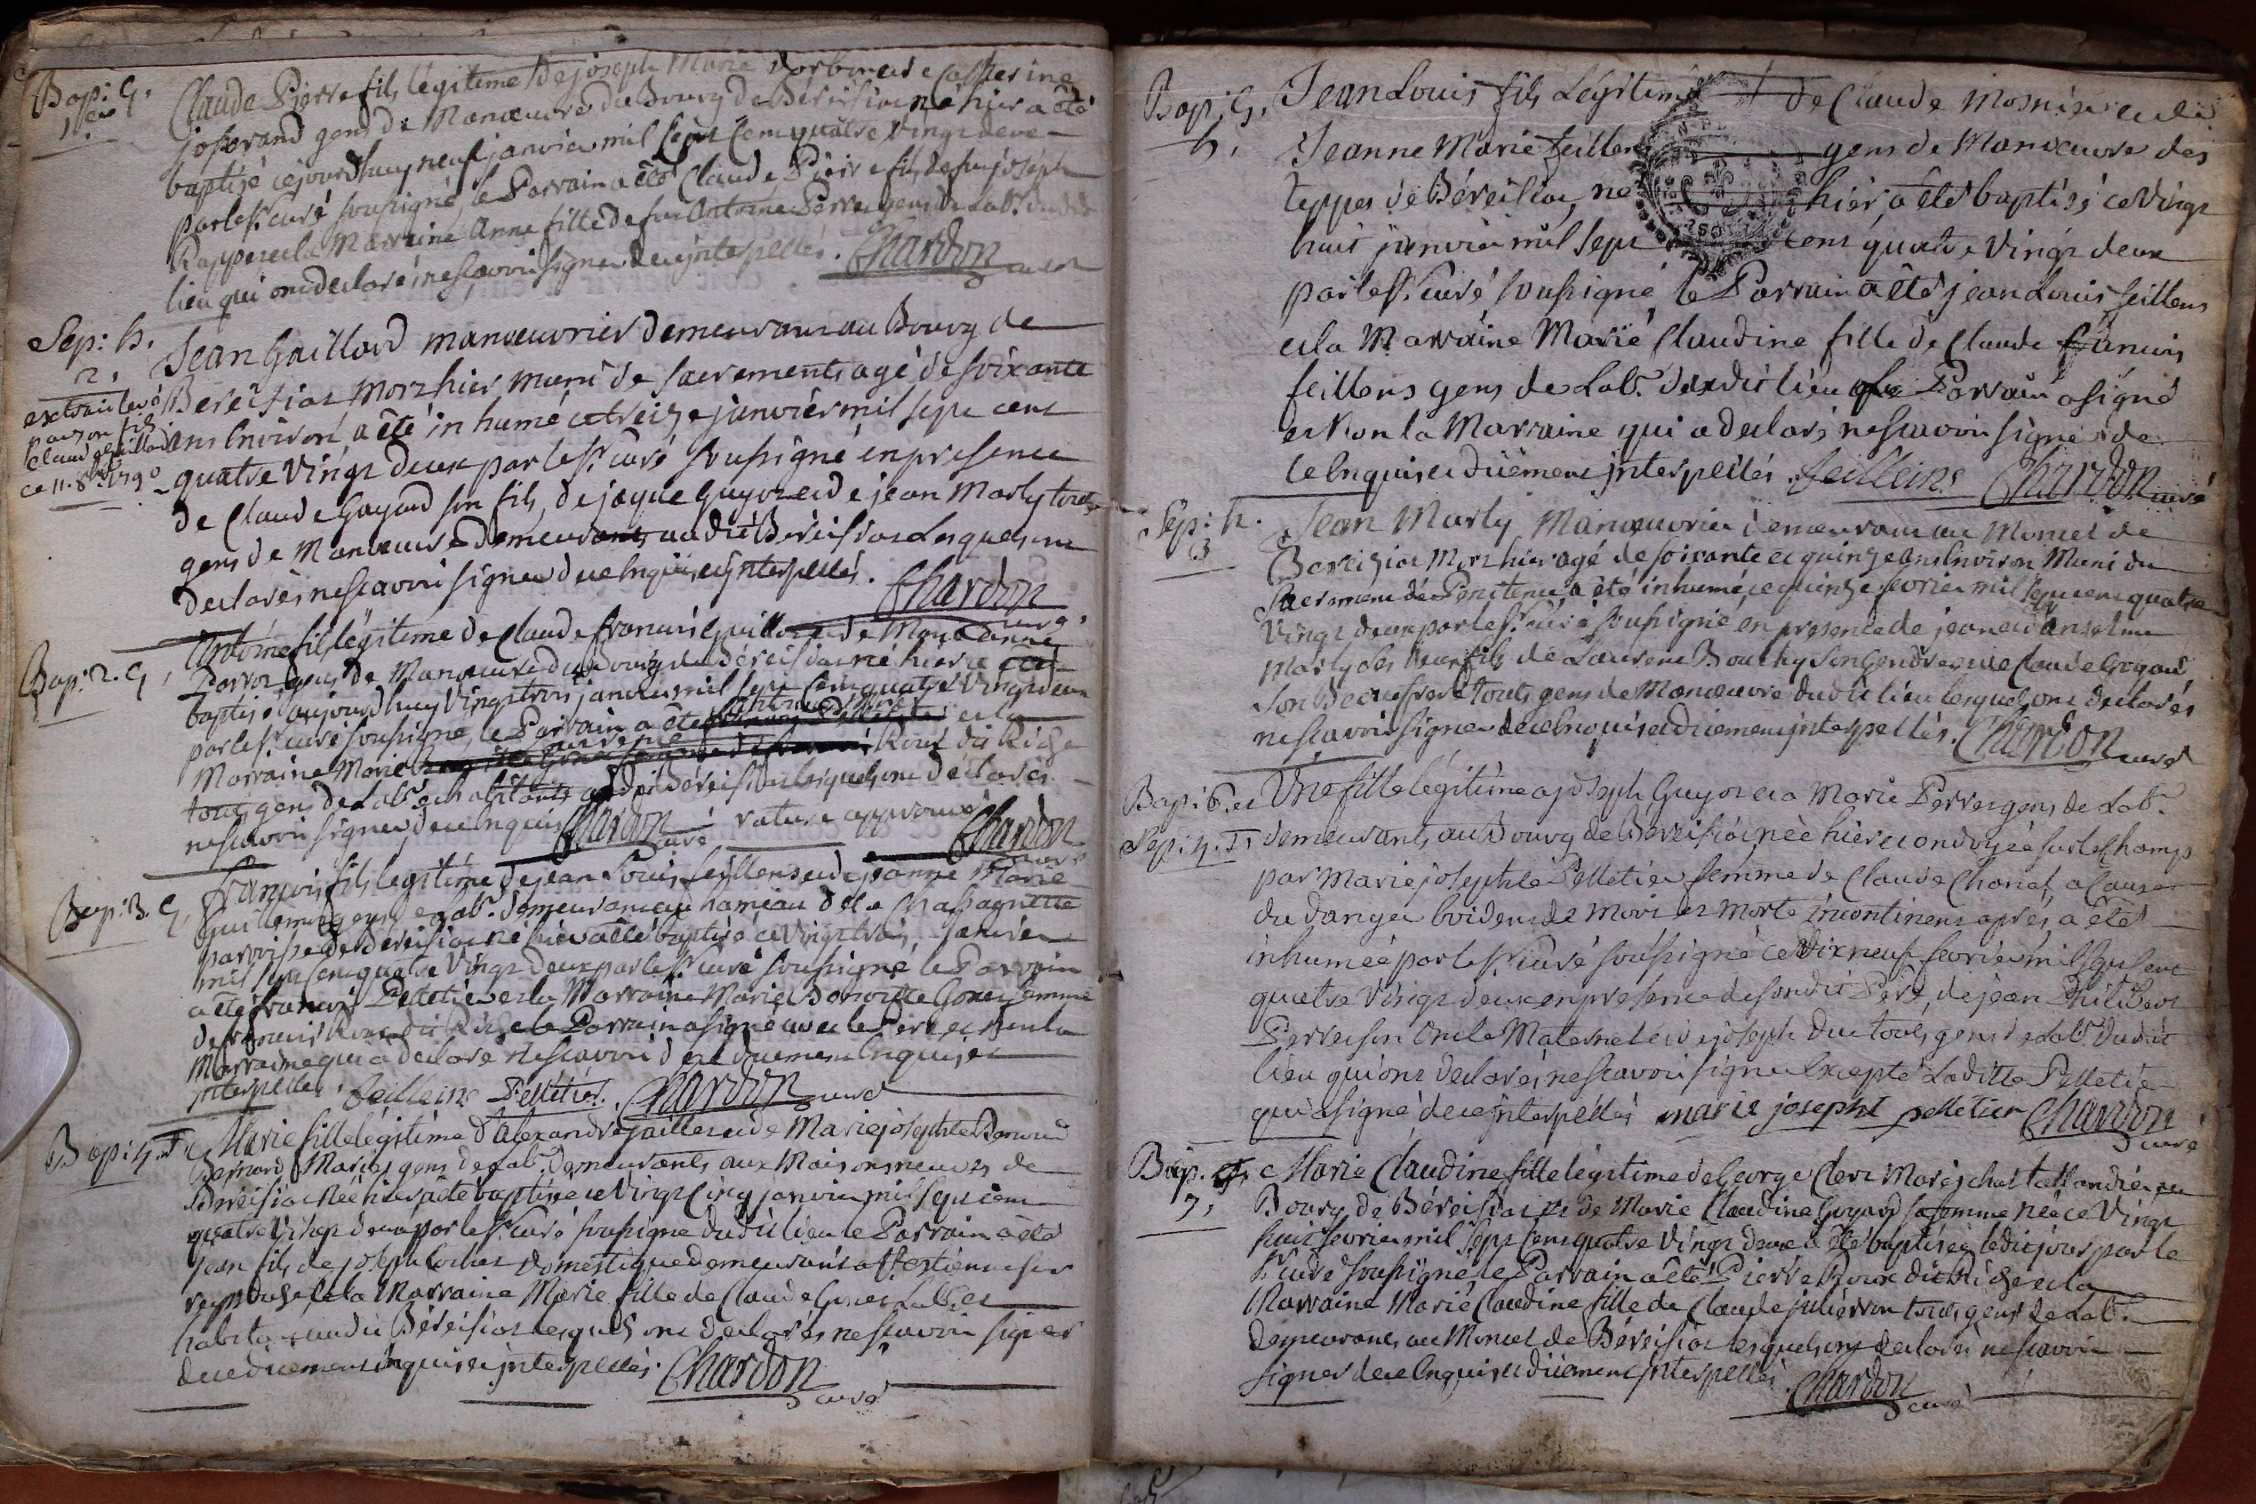 Bap: G.
1er
Claude Pierre fils légitime de joseph Marie et de Catherine
josserand gens de Manœuvre du Bourg de Béreisiat né hier a êté
baptizé cejourdhuy neuf janvier mil sept cent quatre vingt deux
par le sr. curé soussigné, le Parrain a êté Claude Pierre fils de feu joseph
et la Marraine Anne fille de feu Antoine Perret gens de Labr. dudit
lieu qui ont declaré nescavoir signer de ce jnterpellés. Chardon curé
Sep: h.
2.
extrait levé
par son fils
claude gaillard
ce 11. 8bre 1790
Jean Gaillard manœuvrier demeurant au Bourg de
Bereisiat mort hier muni de sacrements agé de soixante
ans Environ a êté inhumé ce treize janvier mil sept cent
quatre vingt deux par le sr. curé soussigné en presence
de Claude Gayard son fils, de jaque Guyot et de jean Marly tous
gens de Manœuvre demeurants audit Béreisiat Lesquels ont
declarés nescavoir signer de ce Enquis et jnterpellés. Chardon
curé.
Bap: 2. G.
Antoine fils légitime de Claude françois Guillot et de Marie Anne
gens de Manœuvre du Bourg de Béreisiat né hier a êté
baptisé aujourdhuy vingt trois janvier mil sept cent quatre vingt deux
par le sr. curé soussigné, le Parrain a êté et la
Marraine Marie Roux dit Riche
tous gens de Labr. habitants audit Béreisiat lesquels ont déclarés
nescavoir signer de ce enquis Chardon curé rature approuvé Chardon
curé
Bap: 3. G.
françois fils legitime de jean Louis feillens et de jeanne Marie
Guillemin gens de Labr. demeurant au hameau de la Chassagnette
parroisse de Béreisiat né hier a êté baptisé ce vingt trois janvier
mil sept cent quatre vingt deux par le sr. curé soussigné, le Parrain
a êté francois Pelletier et la Marraine Marie Gonet femme
de francois Roux dit Riche le Parrain a signé avec le Pere et Non la
Marraine qui a declaré nescavoir de ce duement Enquise et
jnterpellée. feilleins Pelletier. Chardon curé
Bap: 4. F.
Marie fille légitime d'alexandre jaillet et de Marie josephte Bernard
Bernard Mariés gens de Lab. demeurants aux Maisons neuves de
Béreisiat Née hier a êté baptisée ce vingt Cinq janvier mil sept cent
quatre vingt deux par le sr. curé soussigné dudit lieu le Parrain a êté
jean fils de joseph domestique demeurant
et la Marraine Marie fille de Claude Gonet Labr. et
habitant audit Béreisiat lesquels ont declarés nescavoir signer
de ce duement enquis et jnterpellés. Chardon
curé
Bap: G.
5.
Jean Louis fils Légitime de Claude Mosnier et de
Jeanne Marie feillens gens de Manœuvre des
Teppes de Béreisiat, né hier, a êté baptisé ce vingt
huit janvier mil sept cent quatre vingt deux
par le sr. curé soussigné le Parrain a êté jean Louis feillens
et la Marraine Marie Claudine fille de Claude francois
feillens gens de Labr. dudit lieu le Parrain a signé
et Non la Marraine qui a declaré nescavoir signer de
ce Enquis et duëment jnterpellés. feilleins Chardon curé
Sep: h.
3
Jean Marly Manœuvrier demeurant au Moncel de
Bereiziat Mort hier agé de soixante et quinze ans Environ Muni du
sacrement de Penitence a êté inhumé ce quinze fevrier mil sept cent quatre
vingt deux par le sr. curé soussigné en presence de jean et Anselme
Marly ses deux fils de Laurent Bouchy son Gendre et de Claude Goyard
son Beaufrere touts gens de Manœuvre dudit lieu lesquels ont declarés
nescavoir signer de ce Enquis et duement jnterpellés. Chardon curé
Bap: 6. et
Sep: 4. F.
Une fille légitime a joseph Guyot et a Marie Perret gens de Lab.
demeurants au Bourg de Bereisiat née hier et ondoyée sur le champ
par Marie josephte Pelletier femme de Claude Chanel a Cause
du danger Evident de Mort et Morte incontinent aprés, a êté
inhumée par le sr. curé soussigné ce dix neuf fevrier mil sept cent
quatre vingt deux en presence de sondit Pere, de jean Philibert
Perret son oncle Maternel et de joseph Duc touts gens de Lab. dudit
lieu qui ont declarés nescavoir signer Excepté Laditte Pelletier
qui a signé de ce jnterpellés marie josepht pelletier Chardon
curé
Bap. G.
7.
Marie Claudine fille légitime de George Clerc Maréchal taillandier au
Bourg de Béreisiat et de Marie Claudine Goyard sa femme Née ce vingt
huit fevrier mil sept cent quatre vingt deux a êté baptisée ledit jour par le
sr. curé soussigné le Parrain a êté Pierre Roux dit Riche et la
Marraine Marie Claudine fille de Claude juilleron touts gens de Lab.
demeurants au Moncel de Béreisiat lesquels ont declarés nescavoir
signer de ce Enquis et duëment jnterpellés Chardon
curé